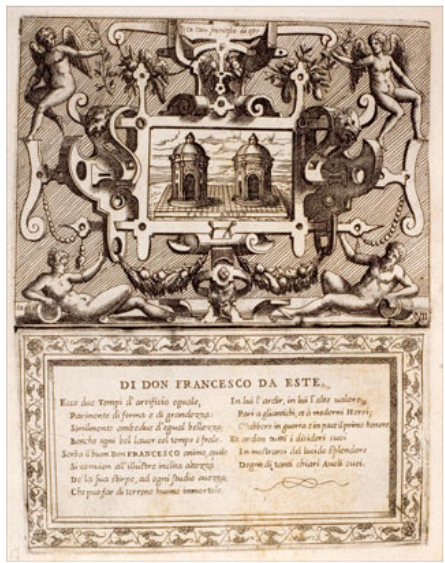 DI DON FRANCESCO DA ESTE.
Ecco due Tempi d'artificio eguale,
Parimente di forma e di grandezza:
Similmente ambedue d'egual bellezza,
Benche ogni bel lauor col tempo è frale.
Serba il buon DON FRANCESCO animo, quale
Si conuien all'illustre inclita altezza
De la sua stirpe, ad ogni studio auezza,
Che puo far di terreno huomo immortale.
In lui l'ardir, in lui l'alto valore,
Pari a gli antichi, et à moderni Heroi,
C'hebbero in guerra e in pace il primo honore
Et ardon tutti i desideri suoi
In mostrarsi del lucido splendore
Degno di tanti chiari Auoli suoi.